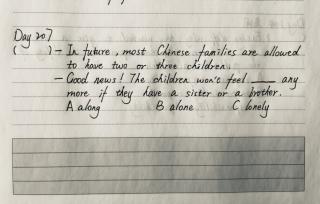 Day 207
( ) - In future, most Chinese families are allowed
to have two or three children.
- Good news! The children won't feel ___ any
more if they have a sister or a brother.
A along B alone C lonely